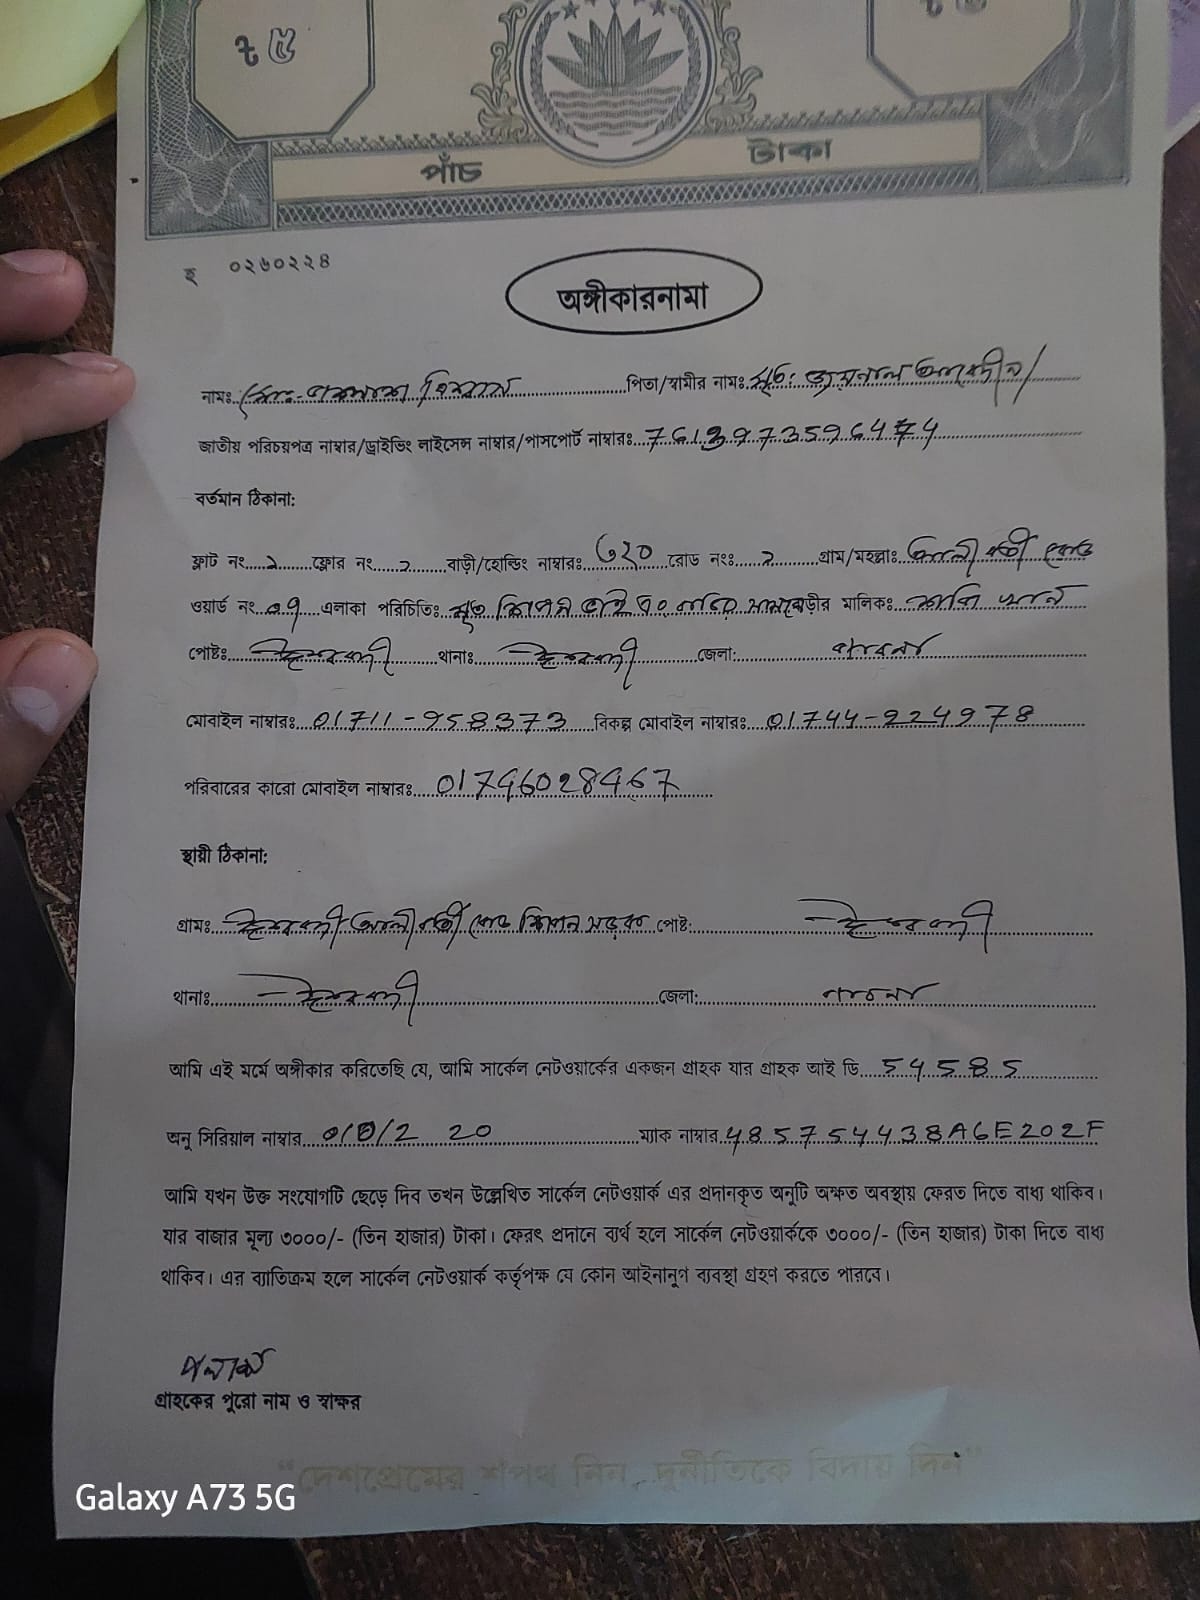 ৳ ৫
৳ ৫
পাঁচ টাকা
হ ০২৬০২২৪
অঙ্গীকারনামা
নামঃ মোঃ-পলাশ বিশ্বাস পিতা/স্বামীর নামঃ মৃতঃ জয়নাল আবেদীন
জাতীয় পরিচয়পত্র নাম্বার/ড্রাইভিং লাইসেন্স নাম্বার/পাসপোর্ট নাম্বারঃ 7613973596474
বর্তমান ঠিকানা:
ফ্লাট নং ফ্লোর নং বাড়ী/হোল্ডিং নাম্বারঃ ৩২০ রোড নংঃ গ্রাম/মহল্লাঃ রোড
ওয়ার্ড নং ০৭ এলাকা পরিচিতিঃ মৃত বাড়ীর মালিকঃ
পোষ্টঃ ঈশ্বরদী থানাঃ ঈশ্বরদী জেলা: পাবনা
মোবাইল নাম্বারঃ 01711-958373 বিকল্প মোবাইল নাম্বারঃ 01744-224978
পরিবারের কারো মোবাইল নাম্বারঃ 01746028467
স্থায়ী ঠিকানা:
গ্রামঃ ঈশ্বরদী রোড পোষ্ট: ঈশ্বরদী
থানাঃ ঈশ্বরদী জেলা: পাবনা
আমি এই মর্মে অঙ্গীকার করিতেছি যে, আমি সার্কেল নেটওয়ার্কের একজন গ্রাহক যার গ্রাহক আই ডি 54585
অনু সিরিয়াল নাম্বার 0/0/2 20 ম্যাক নাম্বার 485754438A6E202F
আমি যখন উক্ত সংযোগটি ছেড়ে দিব তখন উল্লেখিত সার্কেল নেটওয়ার্ক এর প্রদানকৃত অনুটি অক্ষত অবস্থায় ফেরত দিতে বাধ্য থাকিব।
যার বাজার মূল্য ৩০০০/- (তিন হাজার) টাকা। ফেরৎ প্রদানে ব্যর্থ হলে সার্কেল নেটওয়ার্ককে ৩০০০/- (তিন হাজার) টাকা দিতে বাধ্য
থাকিব। এর ব্যাতিক্রম হলে সার্কেল নেটওয়ার্ক কর্তৃপক্ষ যে কোন আইনানুগ ব্যবস্থা গ্রহণ করতে পারবে।
পলাশ
গ্রাহকের পুরো নাম ও স্বাক্ষর
"দেশপ্রেমের শপথ নিন, দুর্নীতিকে বিদায় দিন"
Galaxy A73 5G